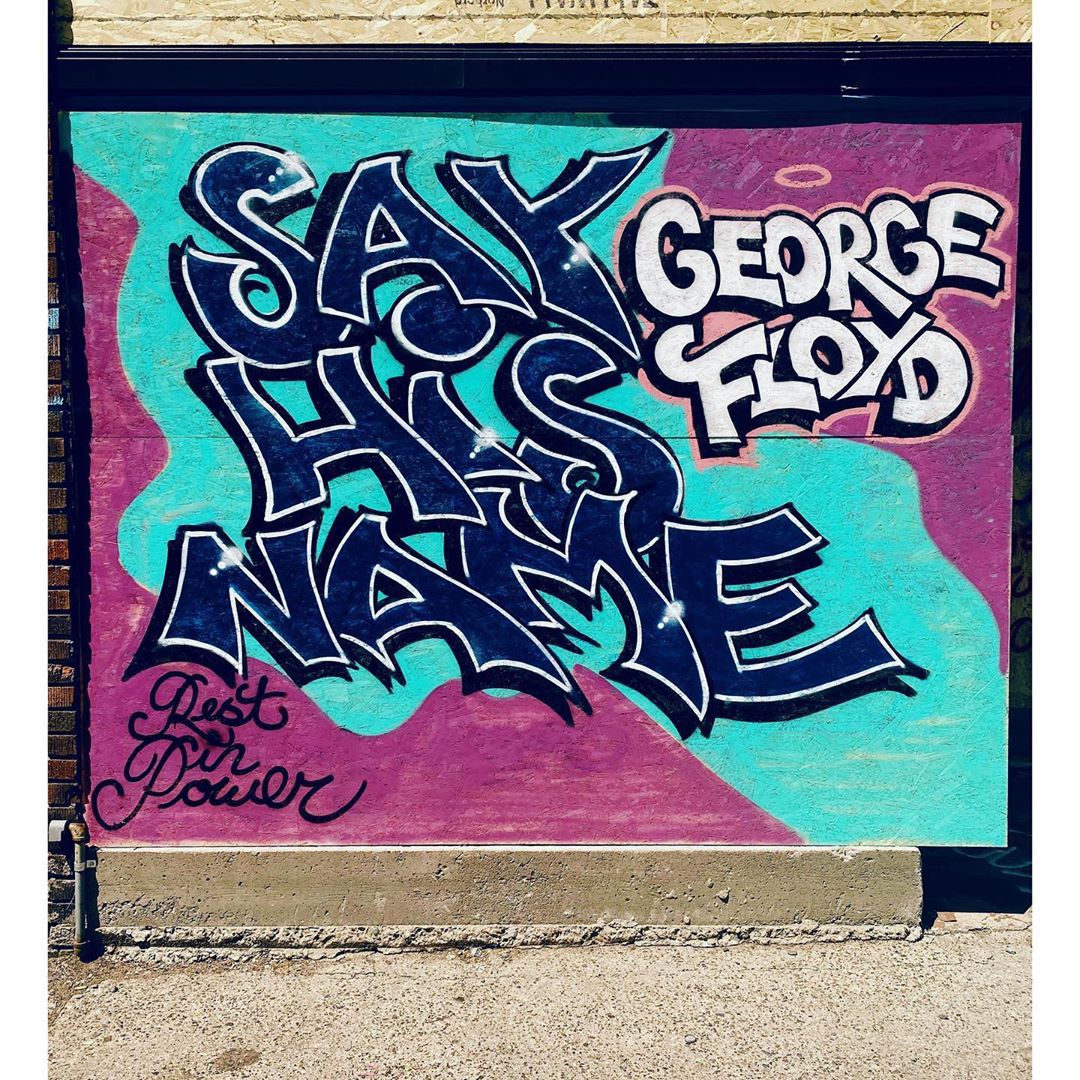 SAY
HIS
NAME
GEORGE
FLOYD
Rest
in
Power